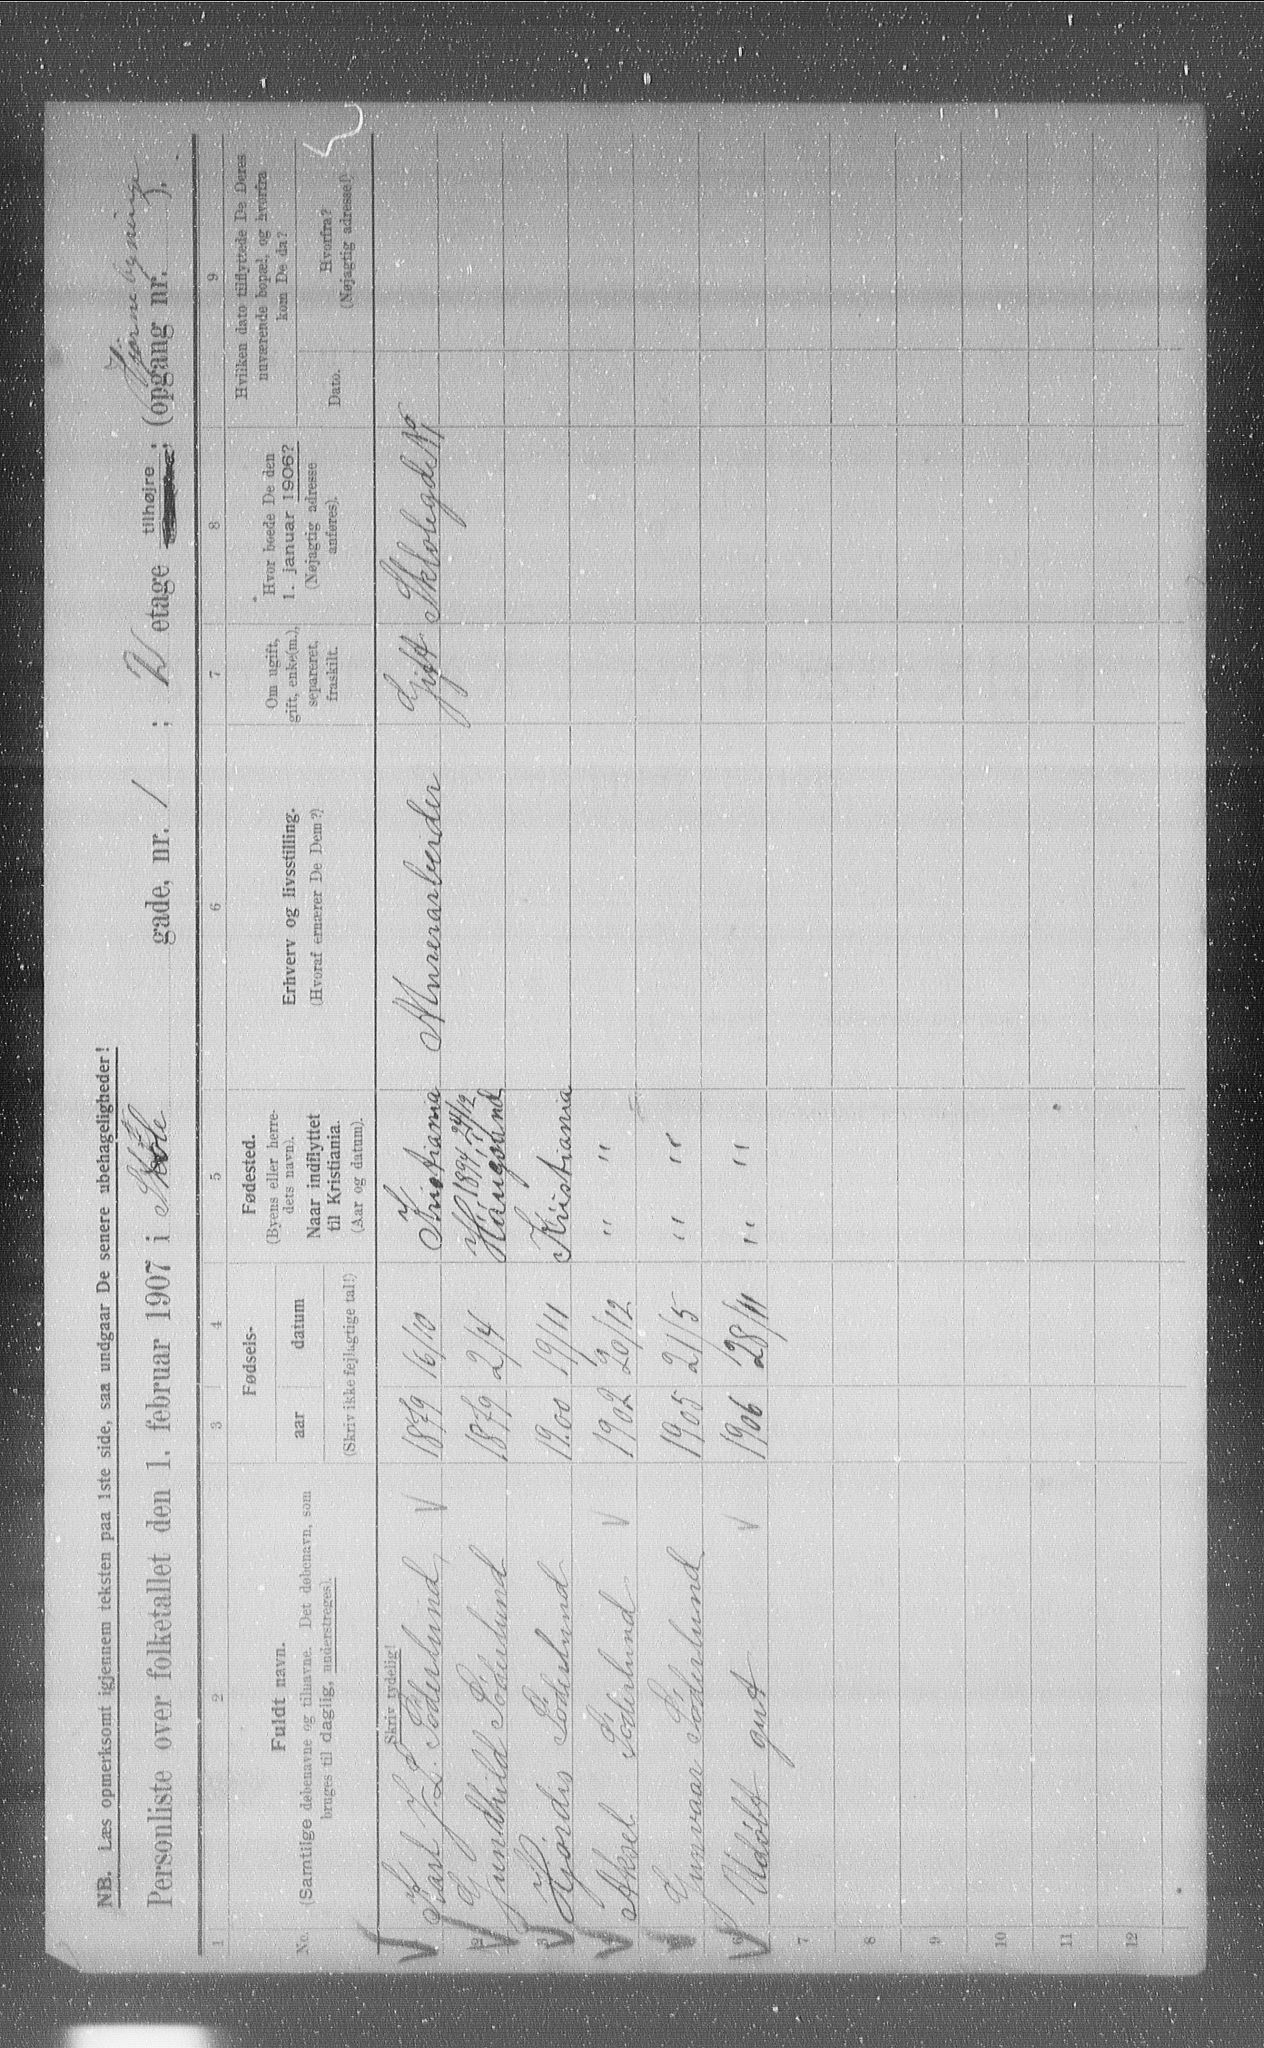 NB. Læs opmerksomt igjennem teksten paa 1ste side, saa undgaar De senere ubehageligheder!
Personliste over folketallet den 1. februar 1907 i Skole gade, nr. 1 ; 2 etage tilhøjre ; (opgang nr. Hjørnebygning ).
1 2 3 4 5 6 7 8 9
No.
Fuldt navn.
(Samtlige døbenavne og tilnavne. Det døbenavn, som
bruges til daglig, understreges).
Fødsels-
aar datum
(Skriv ikke fejlagtige tal!)
Fødested.
(Byens eller herre-
dets navn).
Naar indflyttet
til Kristiania.
(Aar og datum).
Erhverv og livsstilling.
(Hvoraf ernærer De Dem?)
Om ugift,
gift, enke(m.),
separeret,
fraskilt.
Hvor boede De den
1. januar 1906?
(Nøjagtig adresse
anføres).
Hvilken dato tilflyttede De Deres
nuværende bopæl, og hvorfra
kom De da?
Dato.
Hvorfra?
(Nøjagtig adresse!)
Skriv tydelig!
Karl J. L. Söderlund 1879 16/10 Kristiania Murerarbeider Gift Skolegd No 1
2 Gundhild Söderlund 1879 2/4 1894 24/12 Haugsund
3 Hjørdis Söderlund 1900 19/11 Kristiania
4 Aksel Söderlund 1902 20/12 " "
5 Gunvaar Söderlund 1905 21/5 " "
6 Udøbt gut 1906 28/11 " "
7
8
9
10
11
12